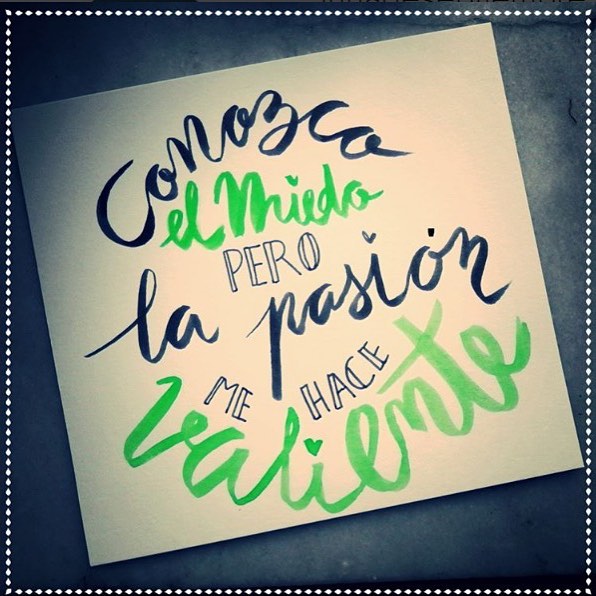 Conozca
el miedo
PERO
la pasión
ME HACE
valiente